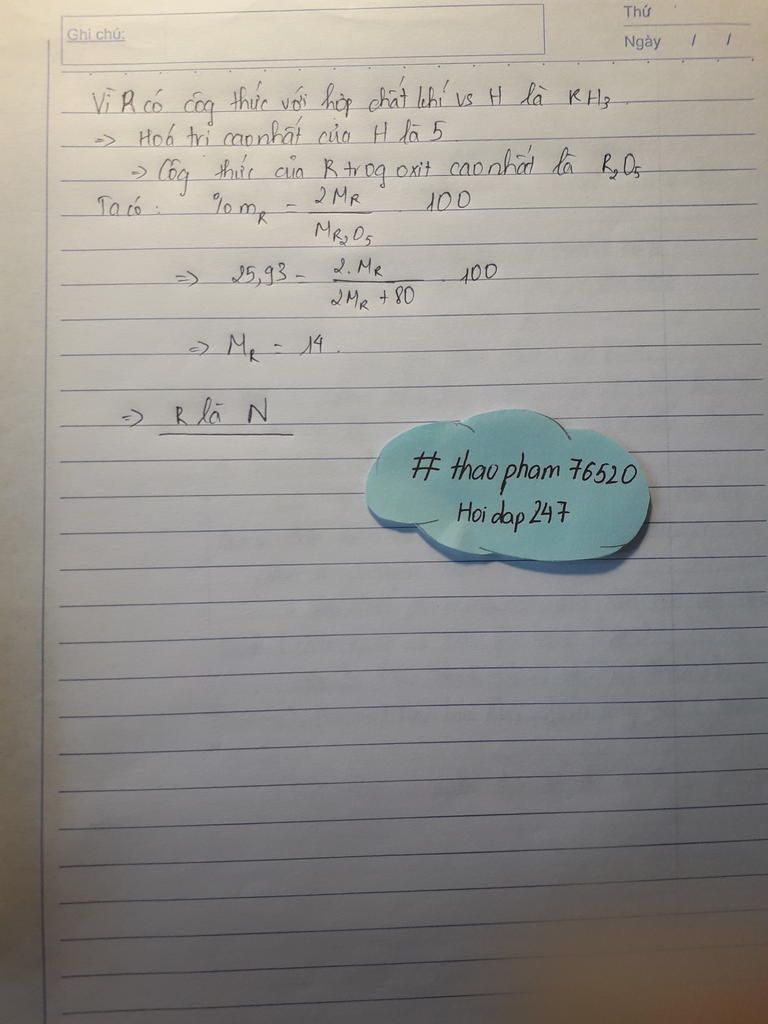 Ghi chú:
Thứ
Ngày / /
Vì R có côg thức với hợp chất khí vs H là RH₃.
=> Hoá trị cao nhất của H là 5
=> Côg thức của R trog oxit cao nhất là R₂O₅
Ta có: %m_R = 2M_R / M_R₂O₅ . 100
=> 25,93 = 2.M_R / 2M_R + 80 . 100
=> M_R = 14.
=> R là N
# thaopham76520
Hoidap247